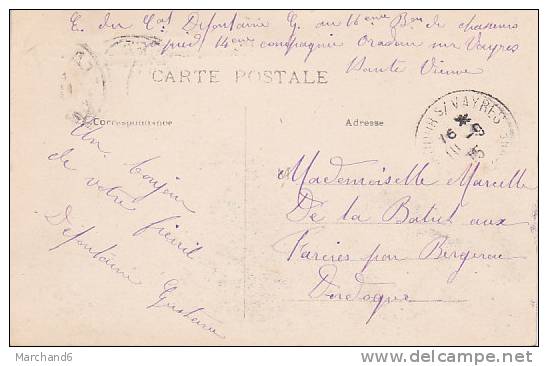 E. du Cal Defontaine G. au 16eme Bon de chasseurs
à pied 14eme compagnie Oradour sur Vayres
Haute Vienne
CARTE POSTALE
Correspondance
Adresse
S/VAYRES
16
15
Un bonjour
de votre
Defontaine Gustave
Mademoiselle Marcelle
De la Batut aux
Farcies par Bergerac
Dordogne
Marchand6
www.delcampe.net